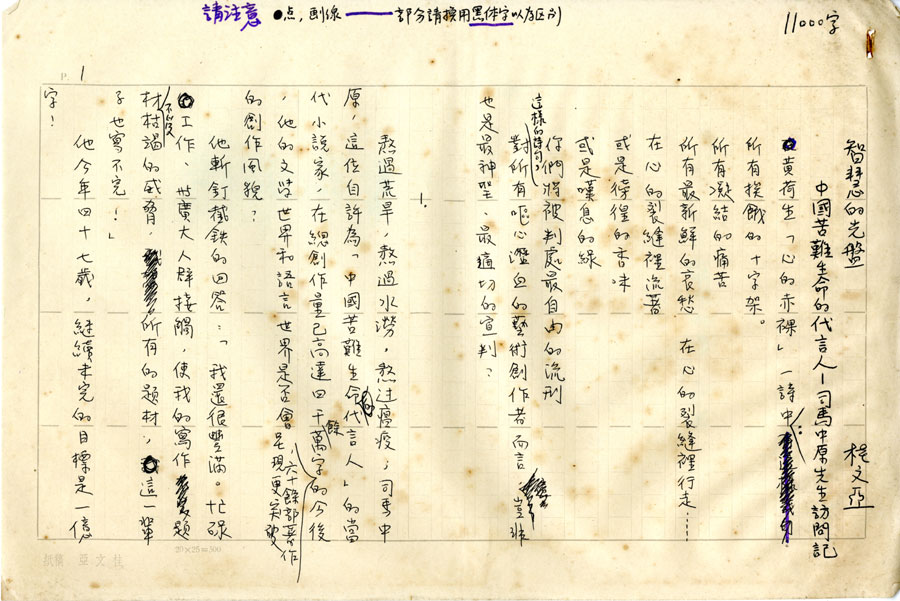 請注意 ●点,劃線 —— 部分請換用黑体字以為区別
11000字
P. 1
智慧的光盤
中國苦難生命的代言人—司馬中原先生訪問記
桂文亞
黃荷生「心的赤裸」一詩中:
所有挨餓的十字架。
所有凝結的痛苦
所有最新鮮的哀愁 在心的裂縫裡行走……
在心的裂縫裡流著
或是徬徨的香味
或是嘆息的綠
你們將被判處最自由的流刑
這樣的詩句,
對所有嘔心瀝血的藝術創作者而言 豈非
也是最神聖、最適切的宣判?
熬過荒旱,熬過水澇,熬過瘟疫;司馬中
原,這位自許為「中國苦難生命的代言人」的當
代小說家,在總創作量已高達四千餘萬字、六十餘部著作的今後
,他的文學世界和語言世界是否會呈現更突破
的創作風貌?
他斬釘截鐵的回答:「我還很豐滿。忙碌
工作、廣大人群接觸,使我的寫作不似受題
材枯竭的威脅,所有的題材,這一輩
子也寫不完!」
他今年四十七歲,繼續未完的目標是一億
字!
20×25=500